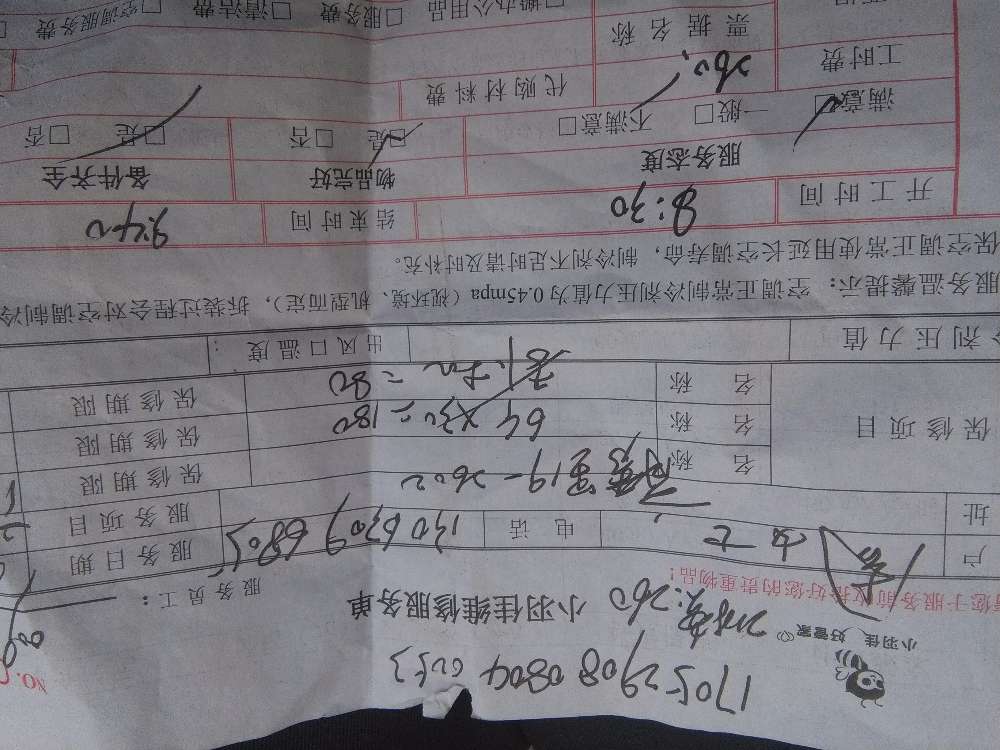 170529080804 0053
小羽佳 好管家
小羽佳维修服务单
NO.
260
服务员工：
您于服务前收拾好您的贵重物品!
户
女士
电话
服务日期
址
19-2602
服务项目
保修项目
名称
保修期限
名称
64×30=180
保修期限
名称
=80
保修期限
剂压力值
出风口温度：
服务温馨提示：空调正常制冷剂压力值为0.45mpa（视环境、机型而定），拆装过程会对空调制冷
保空调正常使用延长空调寿命，制冷剂不足时请及时补充。
开工时间
8:30
结束时间
9:40
服务态度
物品完好
备件齐全
满意□ 一般□ 不满意□
□是 □否
□是 □否
工时费
260
代购材料费
票据名称
办公用品 □服务费 □清洁费 □空调服务费